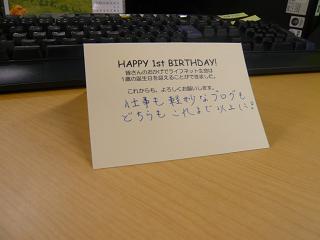 HAPPY 1st BIRTHDAY!
皆さんのおかげでライフネット生命は
1歳の誕生日を迎えることができました。
これからも、よろしくお願いします。
仕事も軽妙なブログも
どちらもこれまで以上に!